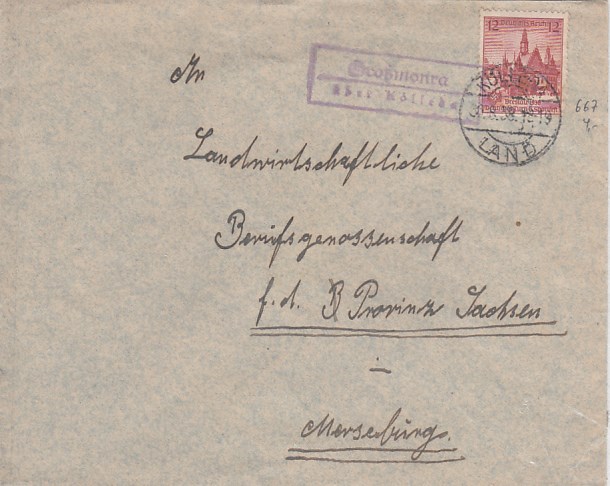 12 Deutsches Reich 12
Großmonra
über Kölleda
KÖLLEDA
LAND
667
4,-
An
Landwirtschaftliche
Berufsgenossenschaft
f. d. B Provinz Sachsen
–
Merseburg.